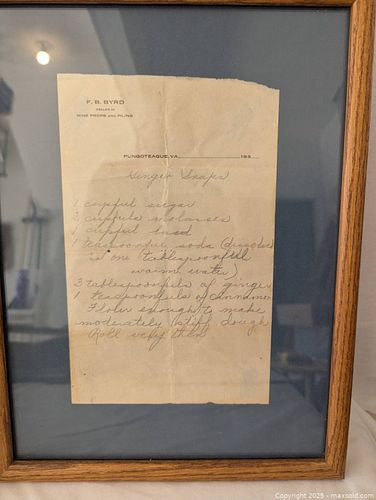 F. B. BYRD
DEALER IN
MINE PROPS AND PILING
PUNGOTEAGUE, VA. 193
Ginger Snaps
1 cupful sugar
2 cupfuls molasses
1 cupful lard
1 teaspoonful soda (dissolve
in one (tablespoonful
warm water)
3 tablespoonfuls of ginger
1 teaspoonfuls of Cinnamon
Flour enough to make
moderately stiff dough
Roll very thin
Copyright © 2025 - maxsold.com